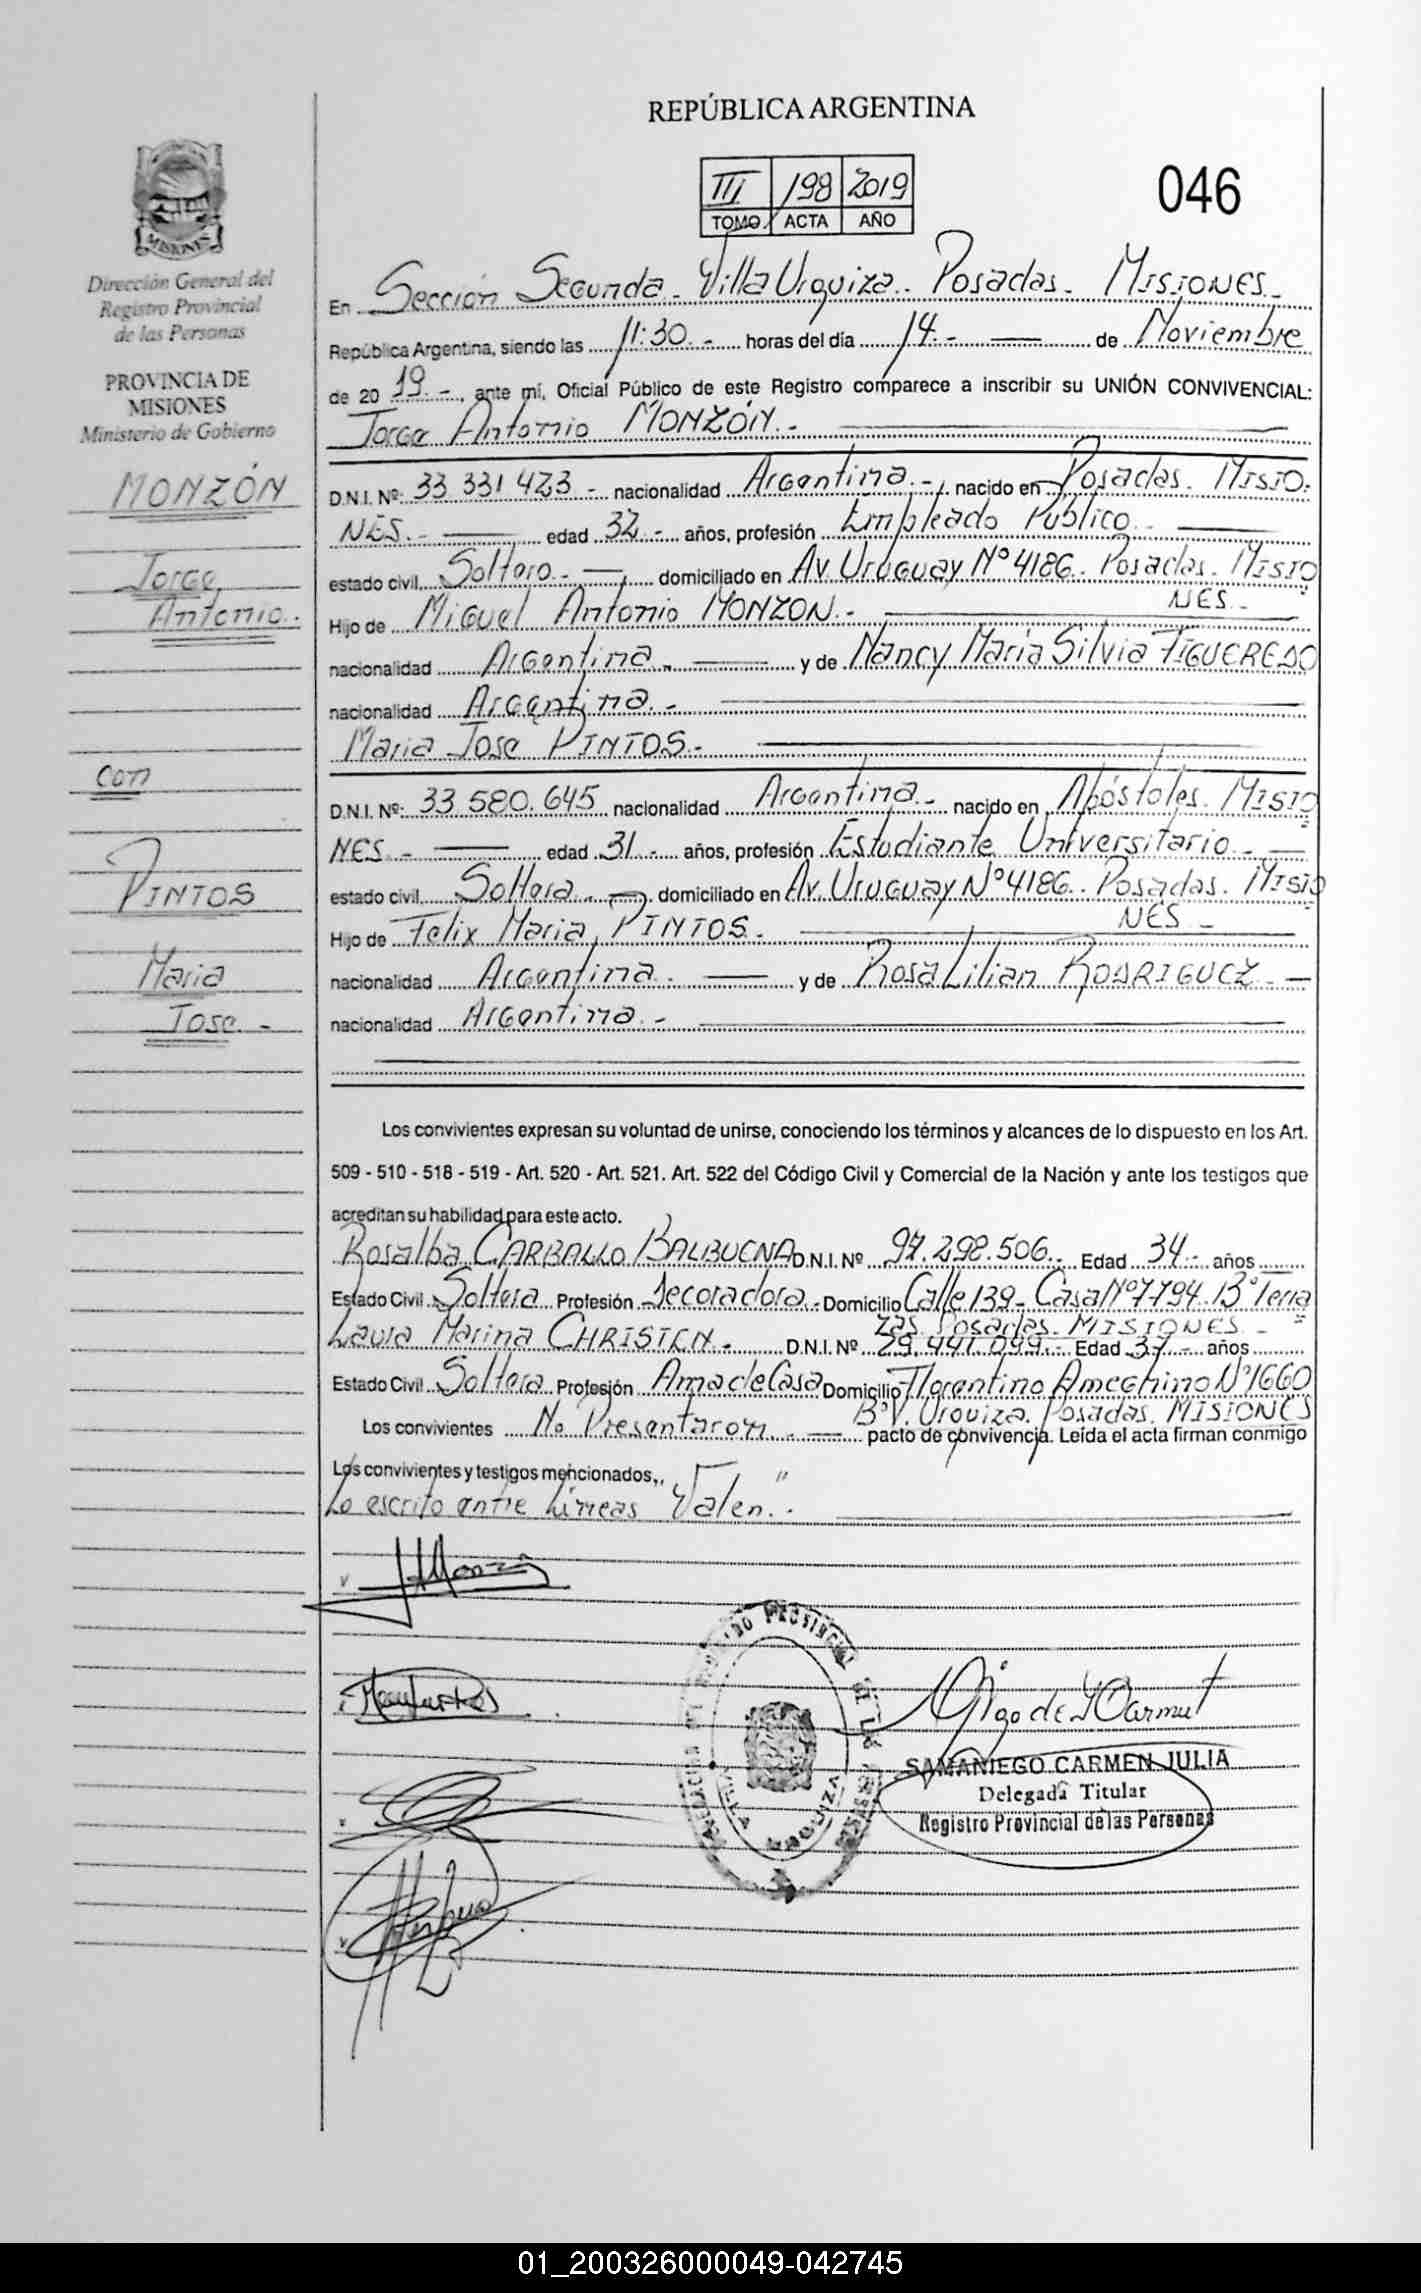 REPÚBLICA ARGENTINA
III 198 2019
TOMO ACTA AÑO
046
MISIONES
Dirección General del
Registro Provincial
de las Personas
PROVINCIA DE
MISIONES
Ministerio de Gobierno
MONZÓN
Jorge
Antonio.
con
PINTOS
Maria
Jose. -
En Sección Segunda - Villa Urquiza.. Posadas - MISIONES.-
República Argentina, siendo las 11:30.- horas del día 14.- — de Noviembre
de 20 19.-, ante mí, Oficial Público de este Registro comparece a inscribir su UNIÓN CONVIVENCIAL:
Jorge Antonio MONZÓN.-
D.N.I. Nº: 33 331 423 - nacionalidad Argentina.- nacido en Posadas. MISIO=
NES.- — edad 32.- años, profesión Empleado Público.-
estado civil Soltero.- — domiciliado en Av. Uruguay Nº 4186.. Posadas. MISIO
NES.-
Hijo de Miguel Antonio MONZON.-
nacionalidad Argentina.- — y de Nancy Maria Silvia FIGUEREDO
nacionalidad Argentina.-
Maria Jose PINTOS.-
D.N.I. Nº: 33.580.645 nacionalidad Argentina.- nacido en Apóstoles. MISIO=
NES.- — edad 31.- años, profesión Estudiante Universitario.-
estado civil Soltera.- — domiciliado en Av. Uruguay Nº 4186.. Posadas. MISIO=
NES.-
Hijo de Felix Maria PINTOS.-
nacionalidad Argentina.- — y de Rosa Lilian RODRIGUEZ.-
nacionalidad Argentina.-
Los convivientes expresan su voluntad de unirse, conociendo los términos y alcances de lo dispuesto en los Art.
509 - 510 - 518 - 519 - Art. 520 - Art. 521. Art. 522 del Código Civil y Comercial de la Nación y ante los testigos que
acreditan su habilidad para este acto.
Rosalba CARBALLO BALBUENA D.N.I. Nº 94.298.506.. Edad 34.- años
Estado Civil Soltera Profesión Decoradora.- Domicilio Calle 139- Casa Nº 7794 Bº Terra=
zas. Posadas. MISIONES.-
Laura Marina CHRISTEN.- D.N.I. Nº 29.441.099.- Edad 37.- años
Estado Civil Soltera Profesión Ama de Casa Domicilio Florentino Ameghino Nº 1660
Bº V. Urquiza. Posadas. MISIONES
Los convivientes No Presentaron.- — pacto de convivencia. Leída el acta firman conmigo
Los convivientes y testigos mencionados,,
Lo escrito entre Líneas "Valen".-
VILLA URQUIZA
SAMANIEGO CARMEN JULIA
Delegada Titular
Registro Provincial de las Personas
01_200326000049-042745